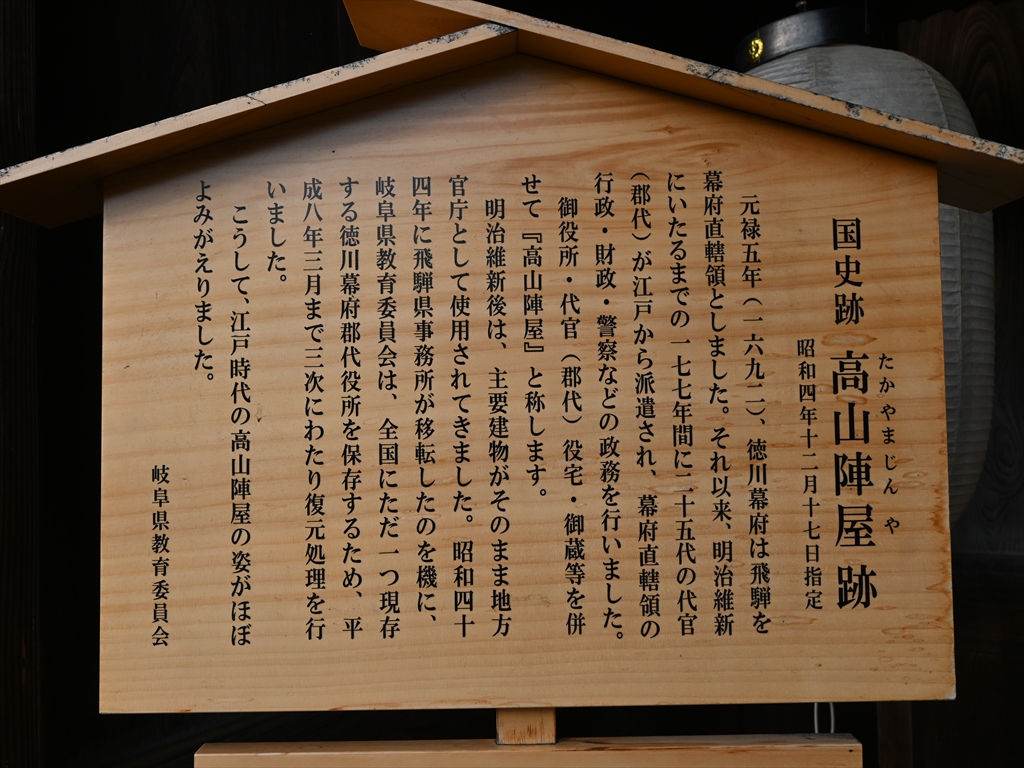 国史跡 高山陣屋跡
たかやまじんや
昭和四年十二月十七日指定
元禄五年(一六九二)、徳川幕府は飛騨を
幕府直轄領としました。それ以来、明治維新
にいたるまでの一七七年間に二十五代の代官
(郡代)が江戸から派遣され、幕府直轄領の
行政・財政・警察などの政務を行いました。
御役所・代官(郡代)役宅・御蔵等を併
せて『高山陣屋』と称します。
明治維新後は、主要建物がそのまま地方
官庁として使用されてきました。昭和四十
四年に飛騨県事務所が移転したのを機に、
岐阜県教育委員会は、全国にただ一つ現存
する徳川幕府郡代役所を保存するため、平
成八年三月まで三次にわたり復元処理を行
いました。
こうして、江戸時代の高山陣屋の姿がほぼ
よみがえりました。
岐阜県教育委員会